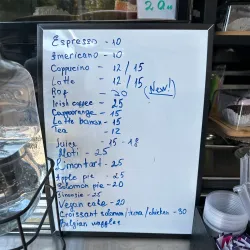 20
Espresso - 10
Americano - 10
Cappucino - 12 / 15
Latte - 12 / 15
Raf - 20 (New!)
Irish coffee - 25
- 15
Latte - 15
Tea - 12
Juice - 15 - 18
- 25
Limontard - 25
Apple pie - 25
Solomon pie - 20
- 25
Vegan cake - 20
Croissant / / chicken - 30
Belgian waffles